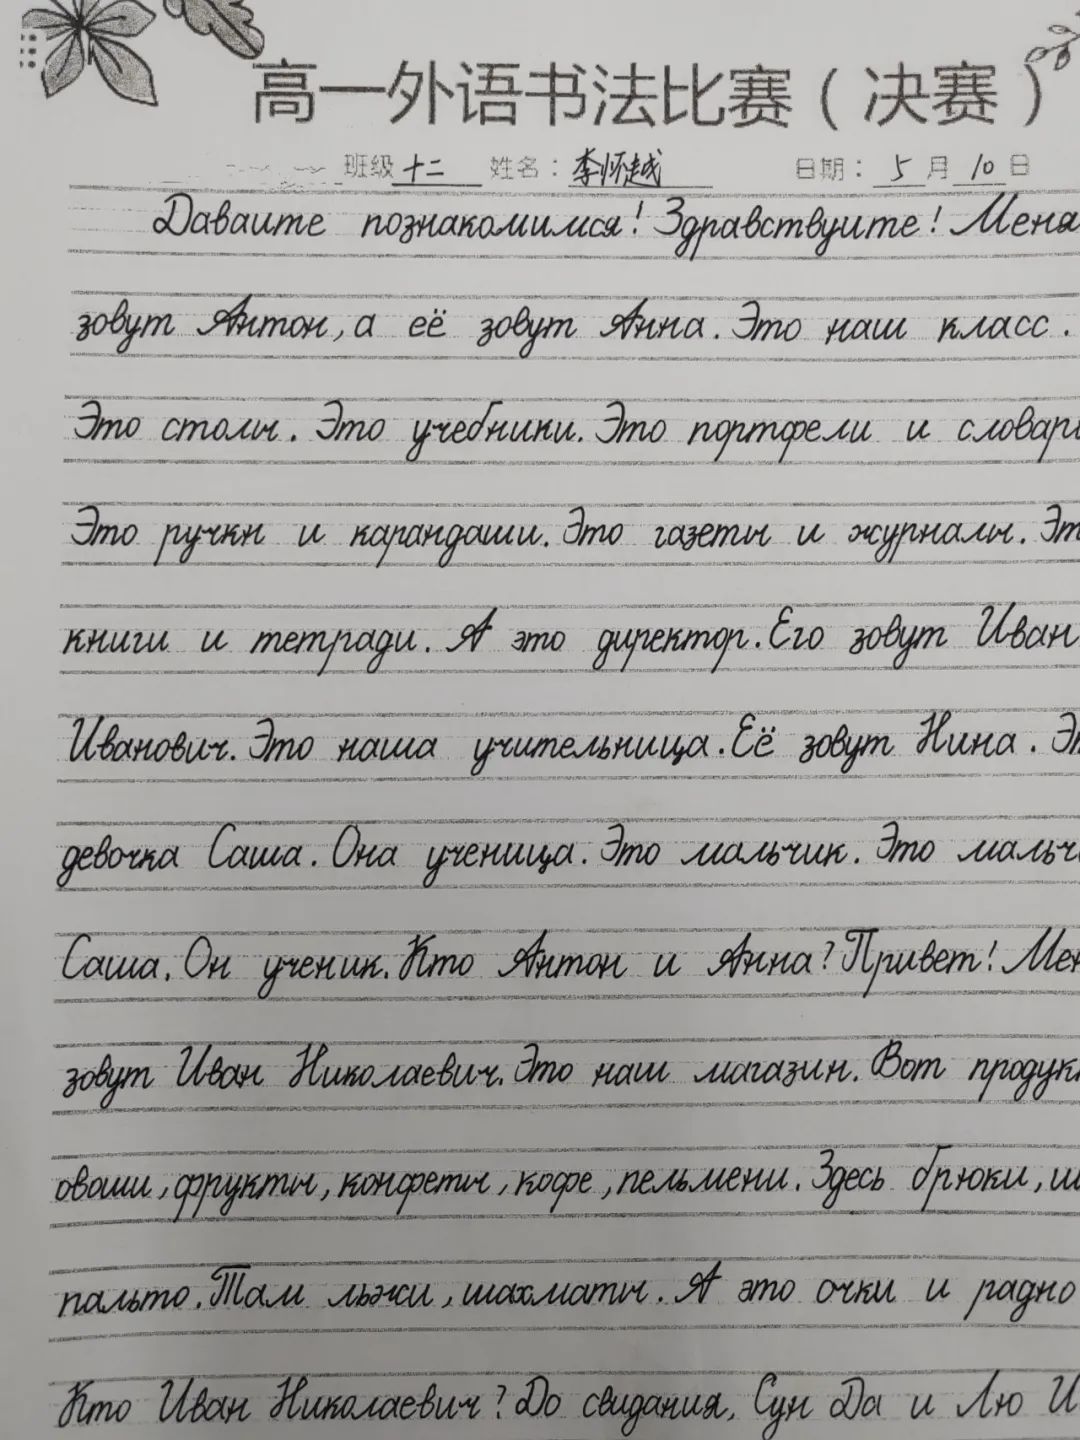 高一外语书法比赛（决赛）
班级 十二 姓名：李怀越 日期：5月10日
Даваите познакомимся! Здравствуите! Меня
зовут Антон, а её зовут Анна. Это наш класс.
Это столы. Это учебники. Это портфели и словари
Это ручки и карандаши. Это газеты и журналы. Эт
книги и тетради. А это директор. Его зовут Иван
Иванович. Это наша учительница. Её зовут Нина. Эт
девочка Саша. Она ученица. Это мальчик. Это мальчи
Саша. Он ученик. Кто Антон и Анна? Привет! Мен
зовут Иван Николаевич. Это наш магазин. Вот продук
овощи, фрукты, конфеты, кофе, пельмени. Здесь брюки, ш
пальто. Там лыжи, шахматы. А это очки и радио
Кто Иван Николаевич? До свидания, Сун Да и Лю И